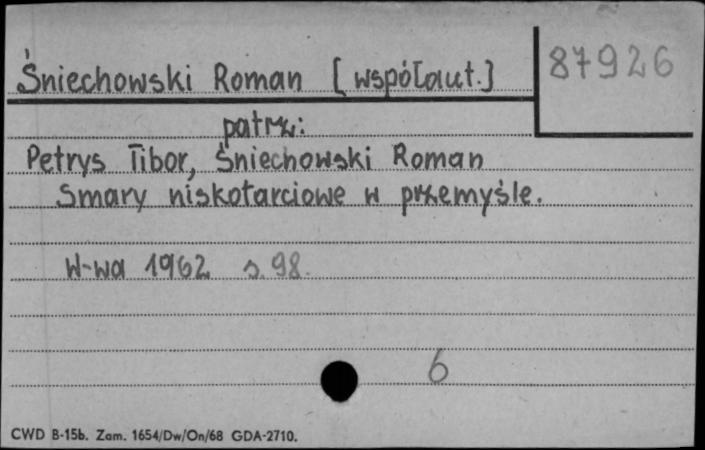 Śniechowski Roman [współaut.]
87926
patrz:
Petrys Tibor, Śniechowski Roman
Smary niskotarciowe w przemyśle.
W-wa 1962 s. 98.
6
CWD B-15b. Zam. 1654/Dw/On/68 GDA-2710.